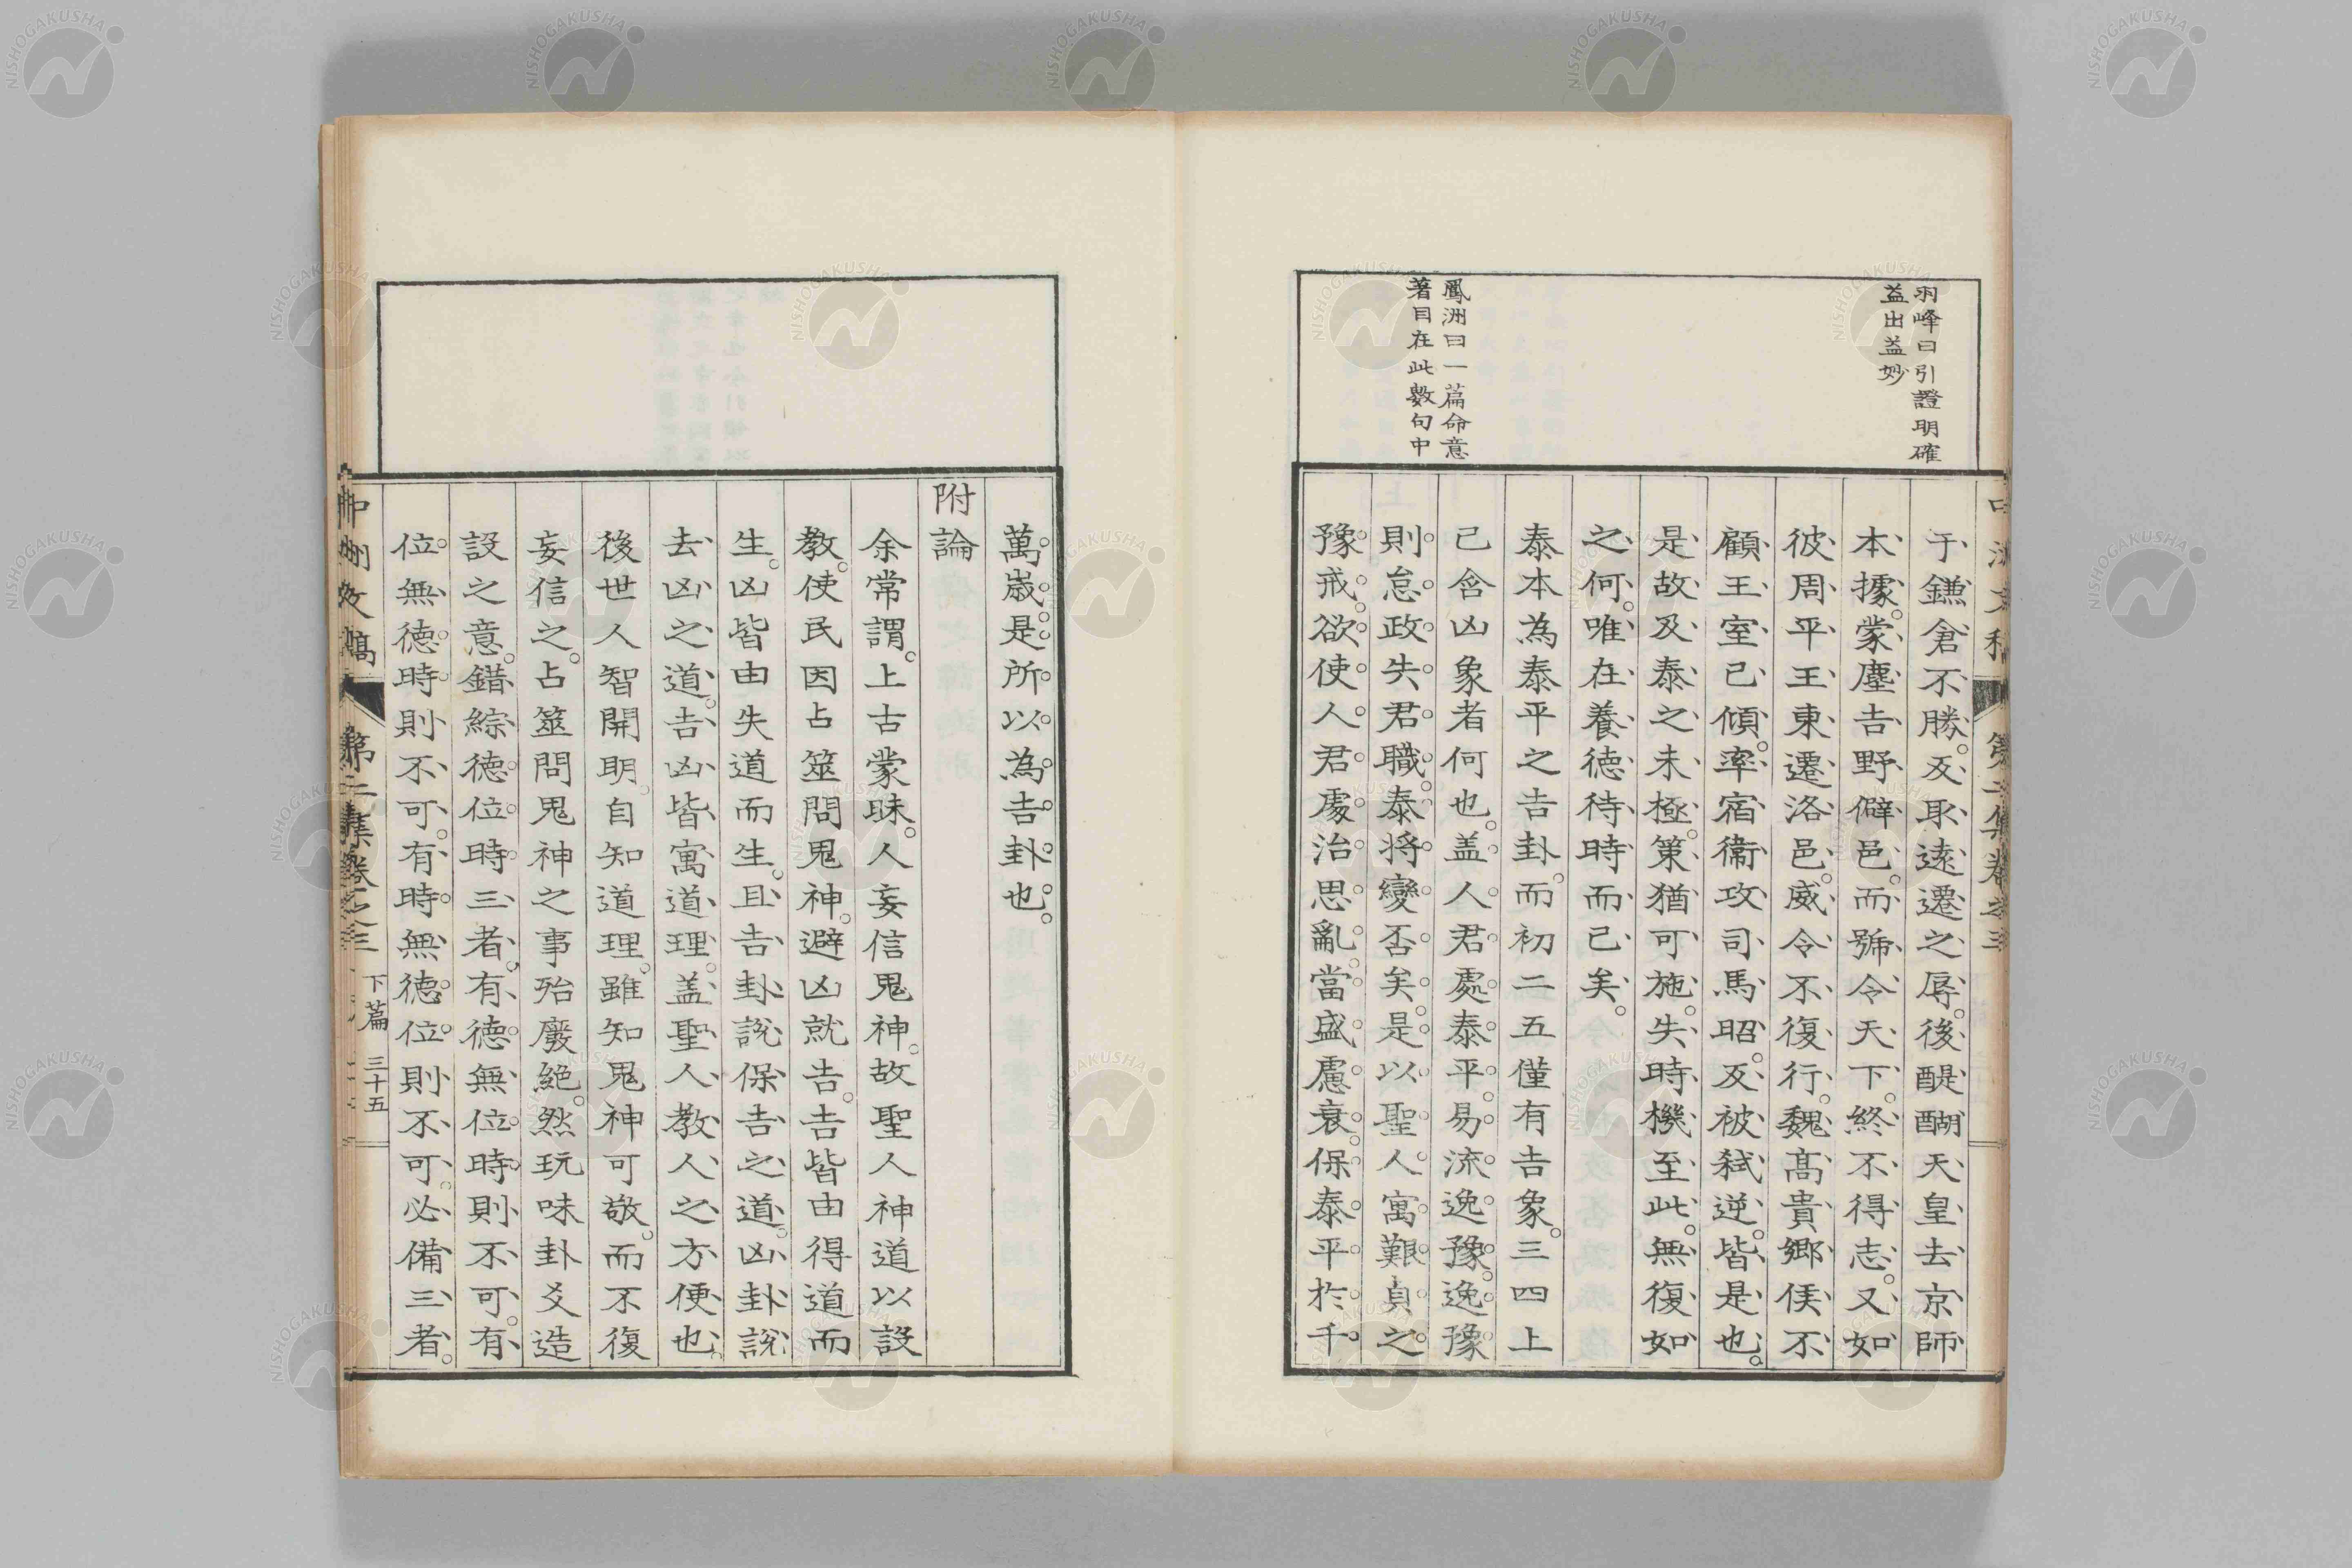 羽峰曰引證明確
益出益妙
鳳洲曰一篇命意
著目在此數句中
于鎌倉不勝。及取遠遷之辱。後醍醐天皇去京師
本據。蒙塵吉野僻邑。而號令天下。終不得志。又如
彼周平王東遷洛邑。威令不復行。魏高貴鄉侯不
顧王室已傾。率宿衞攻司馬昭。及被弒逆。皆是也。
是故及泰之未極。策猶可施。失時機至此。無復如
之何。唯在養德待時而已矣。
泰本為泰平之吉卦。而初二五僅有吉象。三四上
已含凶象者何也。盖人君處泰平。易流逸豫。逸豫
則怠政失君職。泰將變否矣。是以聖人寓艱貞之
豫戒。欲使人君處治思亂。當盛慮衰。保泰平於千
萬歲。是所以為吉卦也。
附論
余常謂。上古蒙昧。人妄信鬼神。故聖人神道以設
教。使民因占筮問鬼神。避凶就吉。吉皆由得道而
生。凶皆由失道而生。且吉卦說保吉之道。凶卦說
去凶之道。吉凶皆寓道理。盖聖人教人之方便也。
後世人智開明。自知道理。雖知鬼神可敬。而不復
妄信之。占筮問鬼神之事殆廢絶。然玩味卦爻造
設之意。錯綜德位時三者。有德無位時則不可。有
位無德時則不可。有時無德位則不可。必備三者。
中洲文稿 第二集卷之三 下篇 三十五
NISHOGAKUSHA